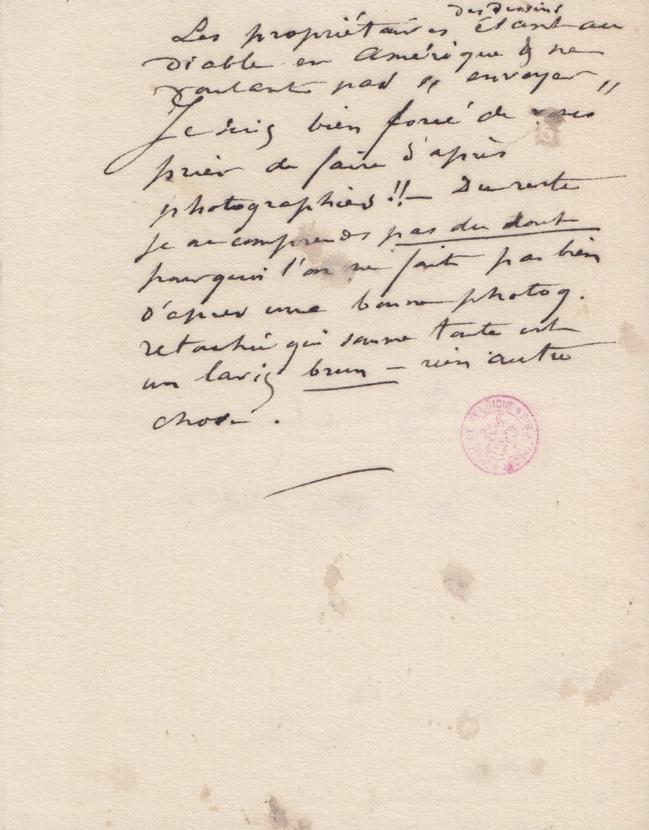 des dessins
Les propriétaires étant au
Diable en Amérique & ne
voulant pas " envoyer "
Je suis bien forcé de vous
prier de faire d'après
photographies !! — Du reste
je ne comprends pas du tout
pourquoi l'on ne fait pas bien
d'après une bonne photog.
retouchée qui somme toute est
un lavis brun — rien autre
chose.